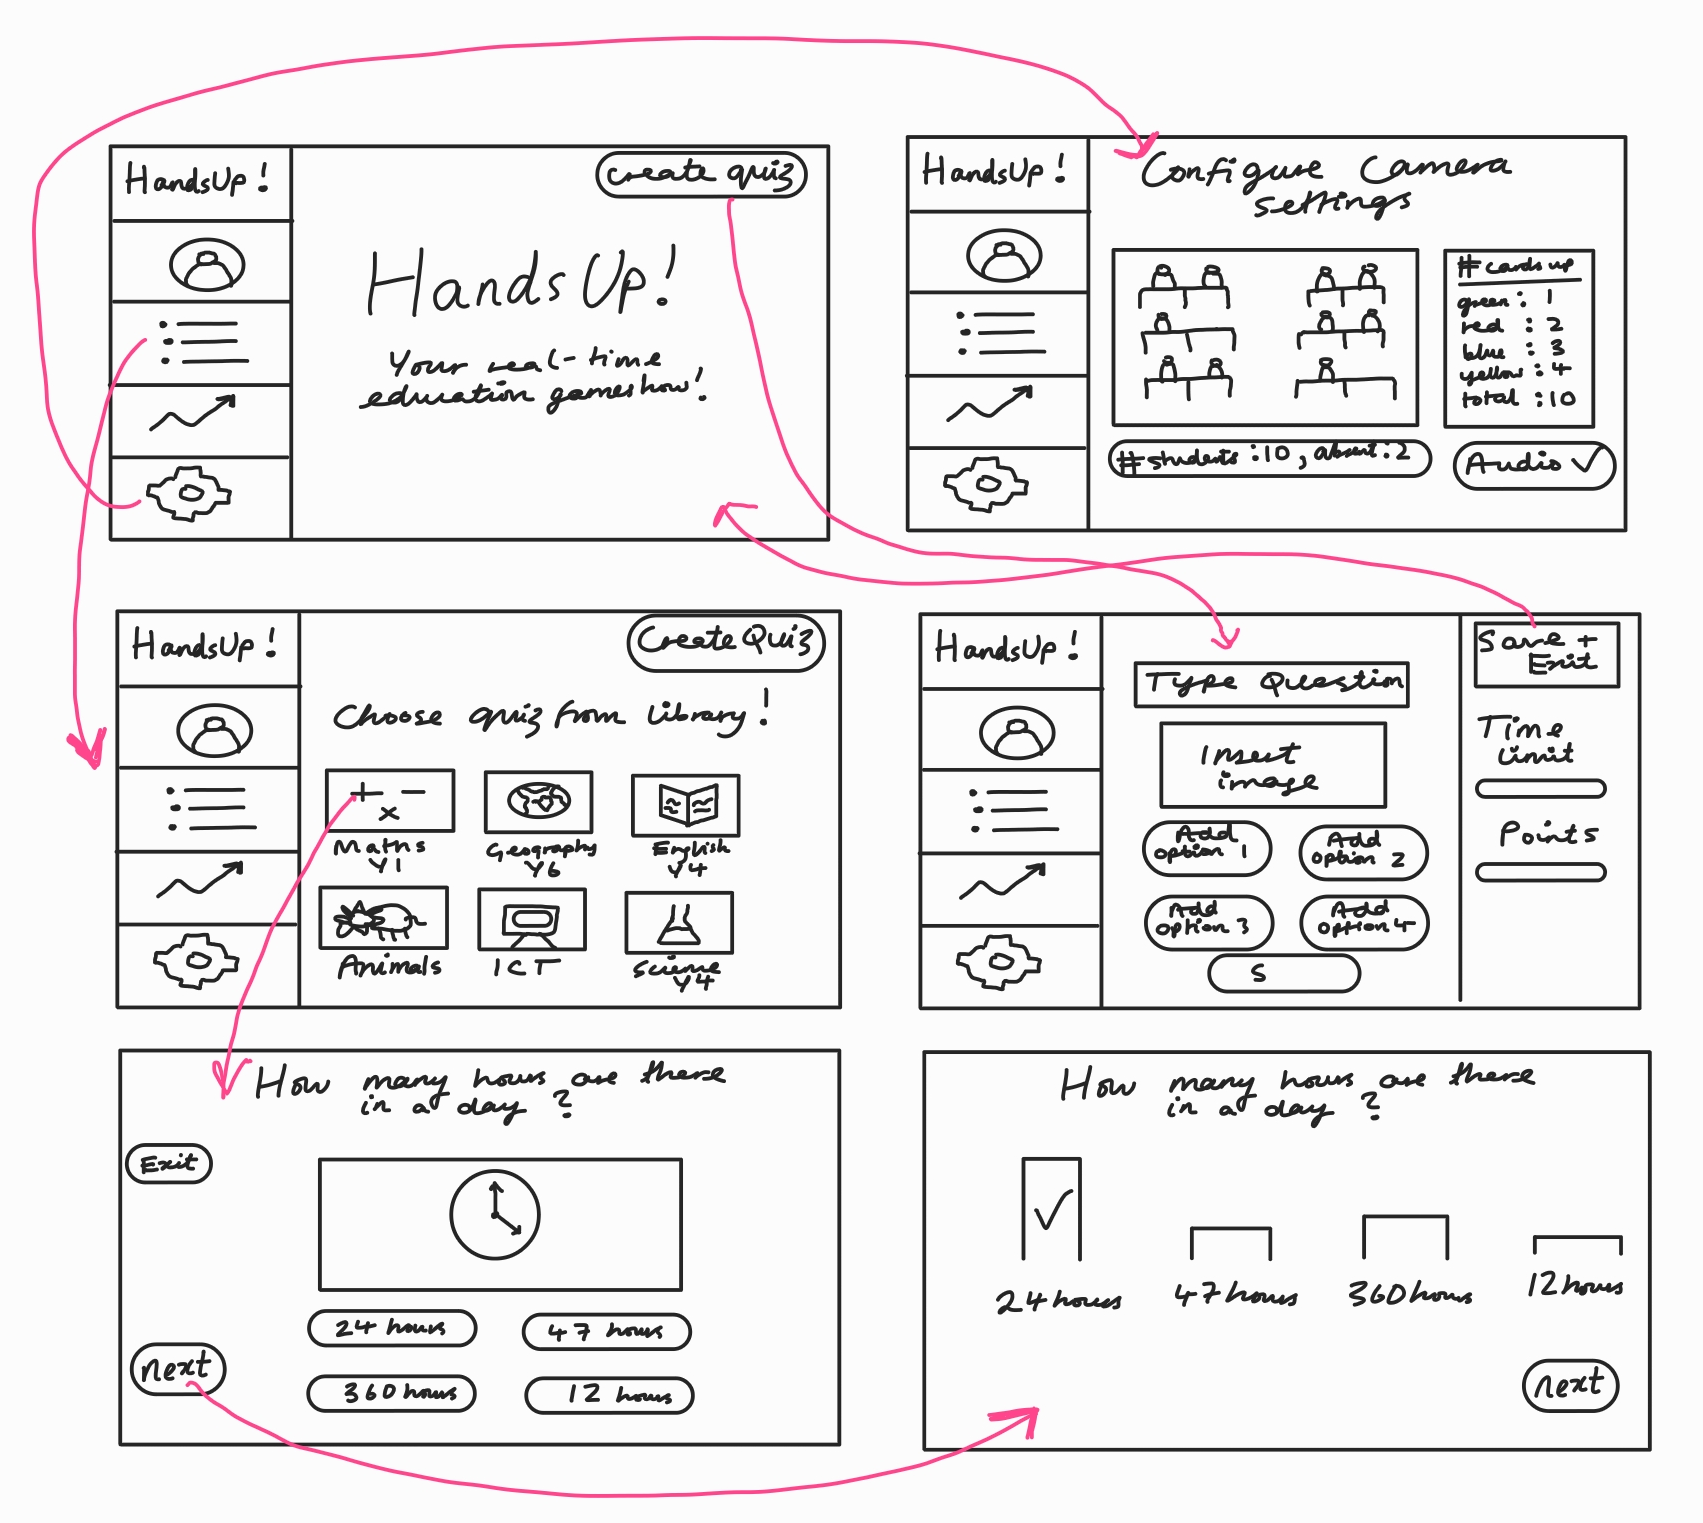 HandsUp!
Create quiz
HandsUp!
Your real-time
education gameshow!
HandsUp!
Configure Camera
settings
# cards up
green : 1
red : 2
blue : 3
yellow : 4
total : 10
#students : 10, absent : 2
Audio ✓
HandsUp!
Create Quiz
Choose quiz from library!
+ -
x
Maths
Y1
Geography
Y6
English
Y4
Animals
ICT
Science
Y4
HandsUp!
Type Question
Insert
image
Add
option 1
Add
option 2
Add
option 3
Add
option 4
S
Save +
Exit
Time
Limit
Points
How many hours are there
in a day ?
Exit
24 hours
47 hours
360 hours
12 hours
next
How many hours are there
in a day ?
✓
24 hours
47 hours
360 hours
12 hours
next